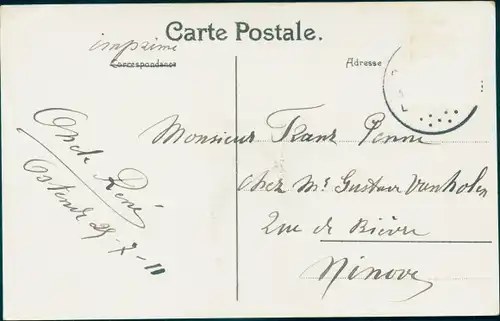 Carte Postale.
imprime
Correspondance
Adresse
Oncle René
Ostende 25-7-11
Monsieur Franz Penne
chez Mr Gustave Vanholen
Rue de Bièvre
Ninove